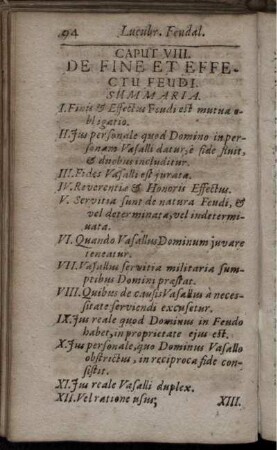 94 Lucubr. Feudal.
CAPUT VIII.
DE FINE ET EFFE-
CTU FEUDI.
SUMMARIA.
I. Finis & Effectus Feudi est mutua o-
bligatio.
II. Jus personale quod Domino in per-
sonam Vasalli datur, è fide fluit,
& duobus includitur.
III. Fides Vasalli est jurata.
IV. Reverentiæ & Honoris Effectus.
V. Servitia sunt de natura Feudi, &
vel determinata, vel indetermi-
nata.
VI. Quando Vasallus Dominum juvare
teneatur.
VII. Vasallus servitia militaria sum-
ptibus Domini præstat.
VIII. Quibus de causis Vasallus à neces-
sitate serviendi excusetur.
IX. Jus reale quod Dominus in Feudo
habet, in proprietate ejus est.
X. Jus personale, quo Dominus Vasallo
obstrictus, in reciproca fide con-
sistit.
XI. Jus reale Vasalli duplex.
XII. Vel ratione usus;
XIII.